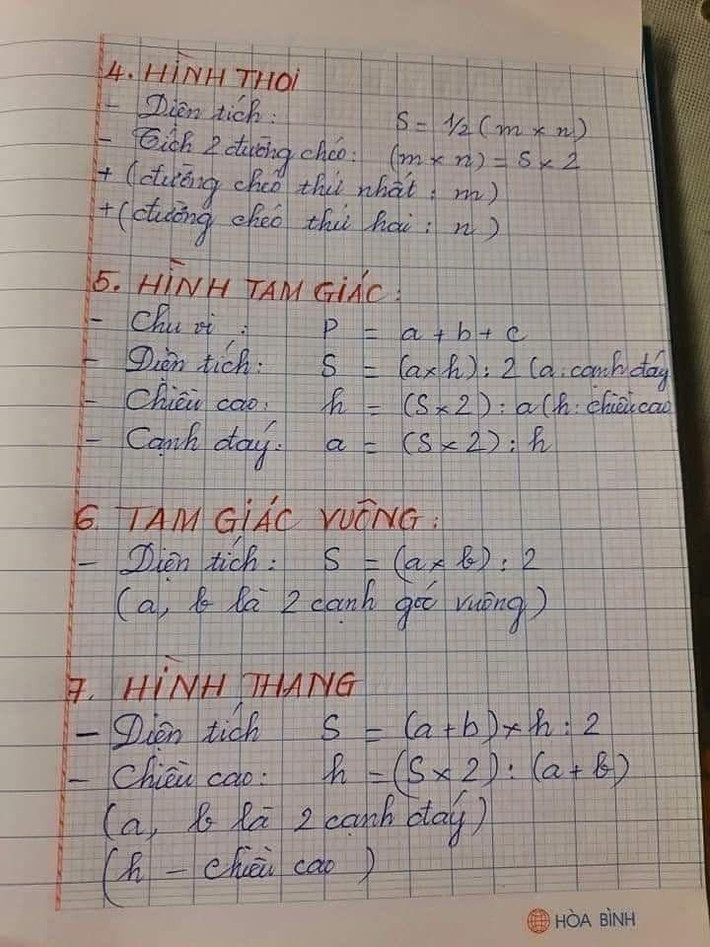 4. HÌNH THOI
- Diện tích: S = 1/2 (m × n)
- Tích 2 đường chéo: (m × n) = S × 2
+ (đường chéo thứ nhất : m)
+ (đường chéo thứ hai : n)
5. HÌNH TAM GIÁC:
- Chu vi : P = a + b + c
- Diện tích: S = (a×h) : 2 (a: cạnh đáy
- Chiều cao: h = (S × 2) : a (h: chiều cao
- Cạnh đáy: a = (S × 2) : h
6. TAM GIÁC VUÔNG:
- Diện tích: S = (a × b) : 2
(a, b là 2 cạnh góc vuông)
7. HÌNH THANG
- Diện tích S = (a + b) × h : 2
- Chiều cao: h = (S × 2) : (a + b)
(a, b là 2 cạnh đáy)
(h - chiều cao )
HÒA BÌNH